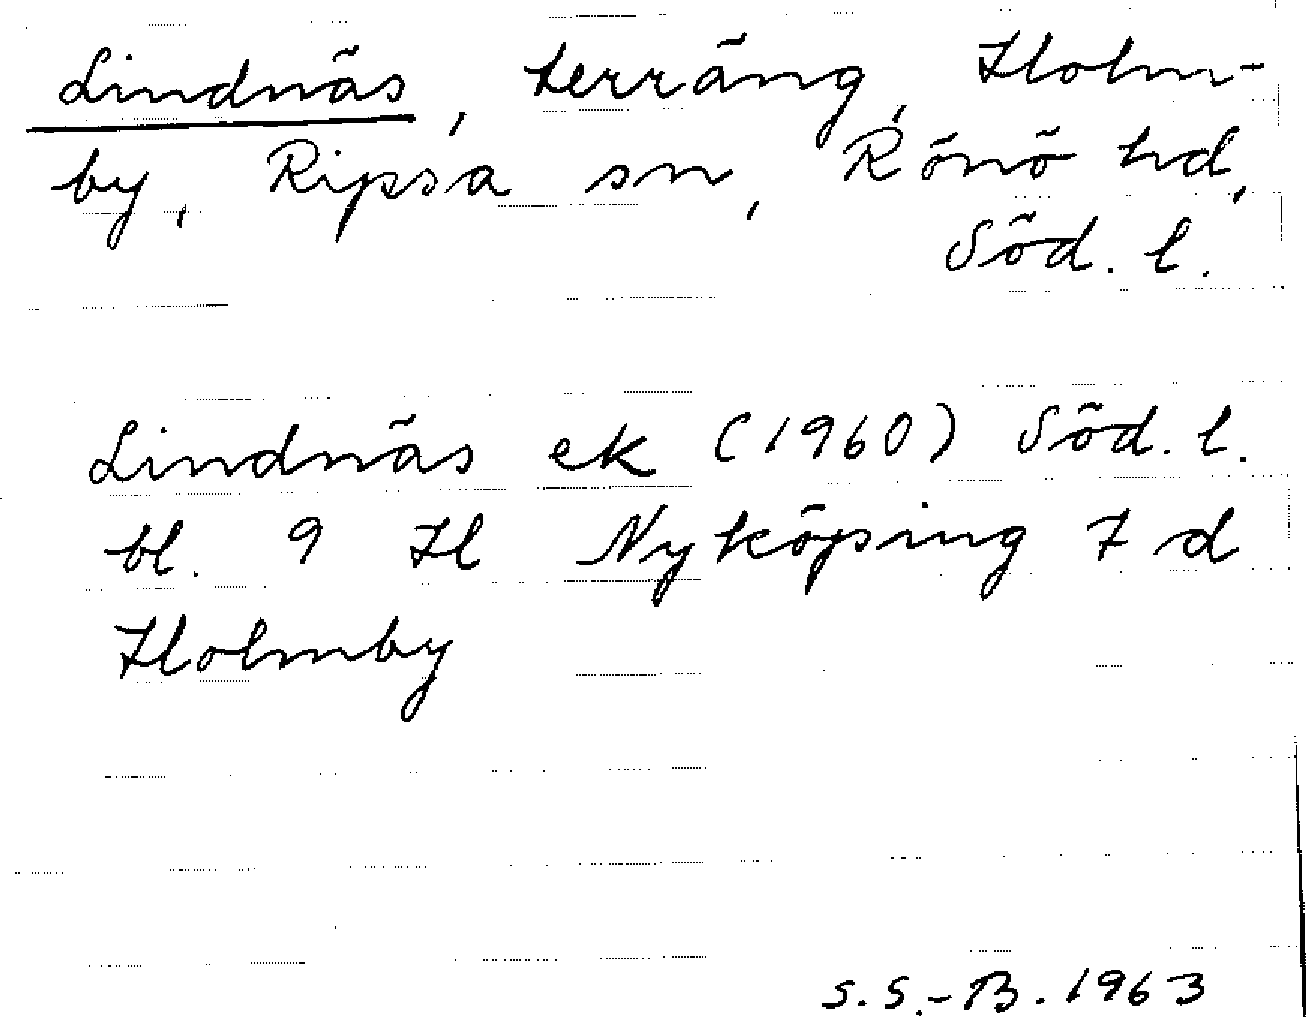 Lindnäs, terräng, Holm-
by, Ripsa sn, Rönö hd,
Söd. l.
Lindnäs ek (1960) Söd. l.
bl. 9 H Nyköping 7 d
Holmby
S.S.-B. 1963